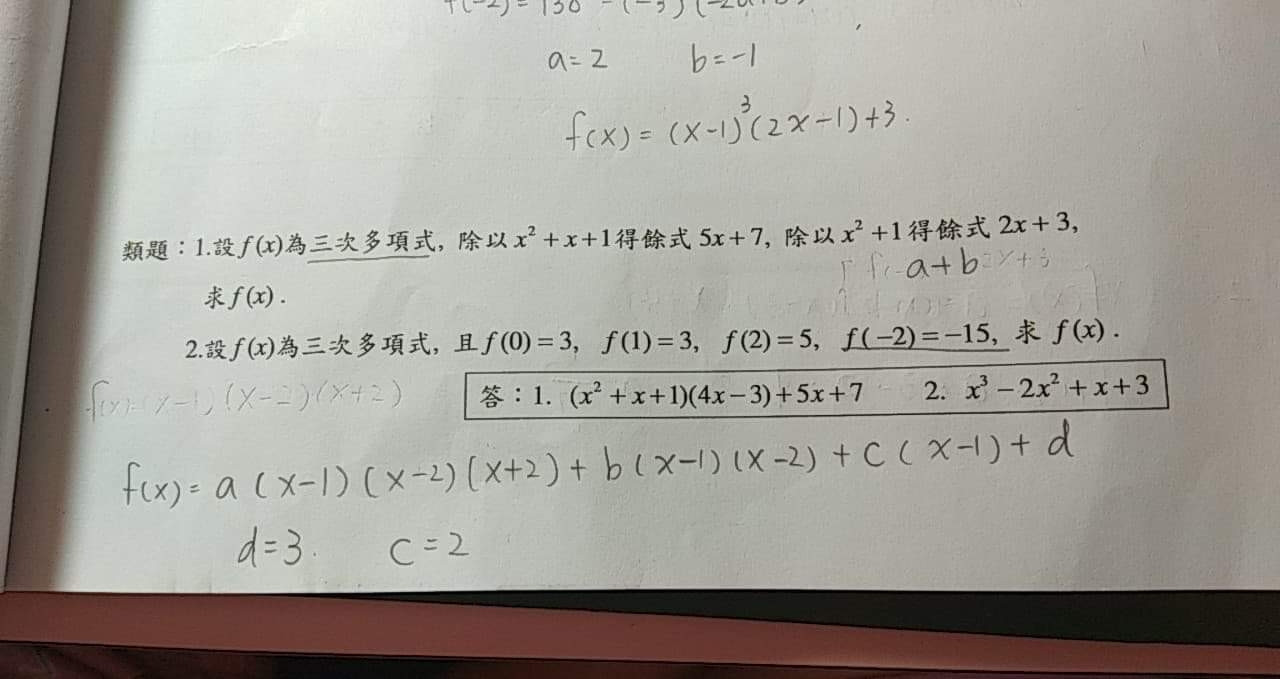 f(-2)=
a=2 b=-1
f(x)=(x-1)³(2x-1)+3.
類題：1.設f(x)為三次多項式, 除以x²+x+1得餘式5x+7, 除以x²+1得餘式2x+3,
a+b
求f(x).
2.設f(x)為三次多項式, 且f(0)=3, f(1)=3, f(2)=5, f(-2)=-15, 求 f(x).
f(x)=(x-1)(x-2)(x+2)
答：1. (x²+x+1)(4x-3)+5x+7 2. x³-2x²+x+3
f(x)=a(x-1)(x-2)(x+2)+b(x-1)(x-2)+c(x-1)+d
d=3. c=2